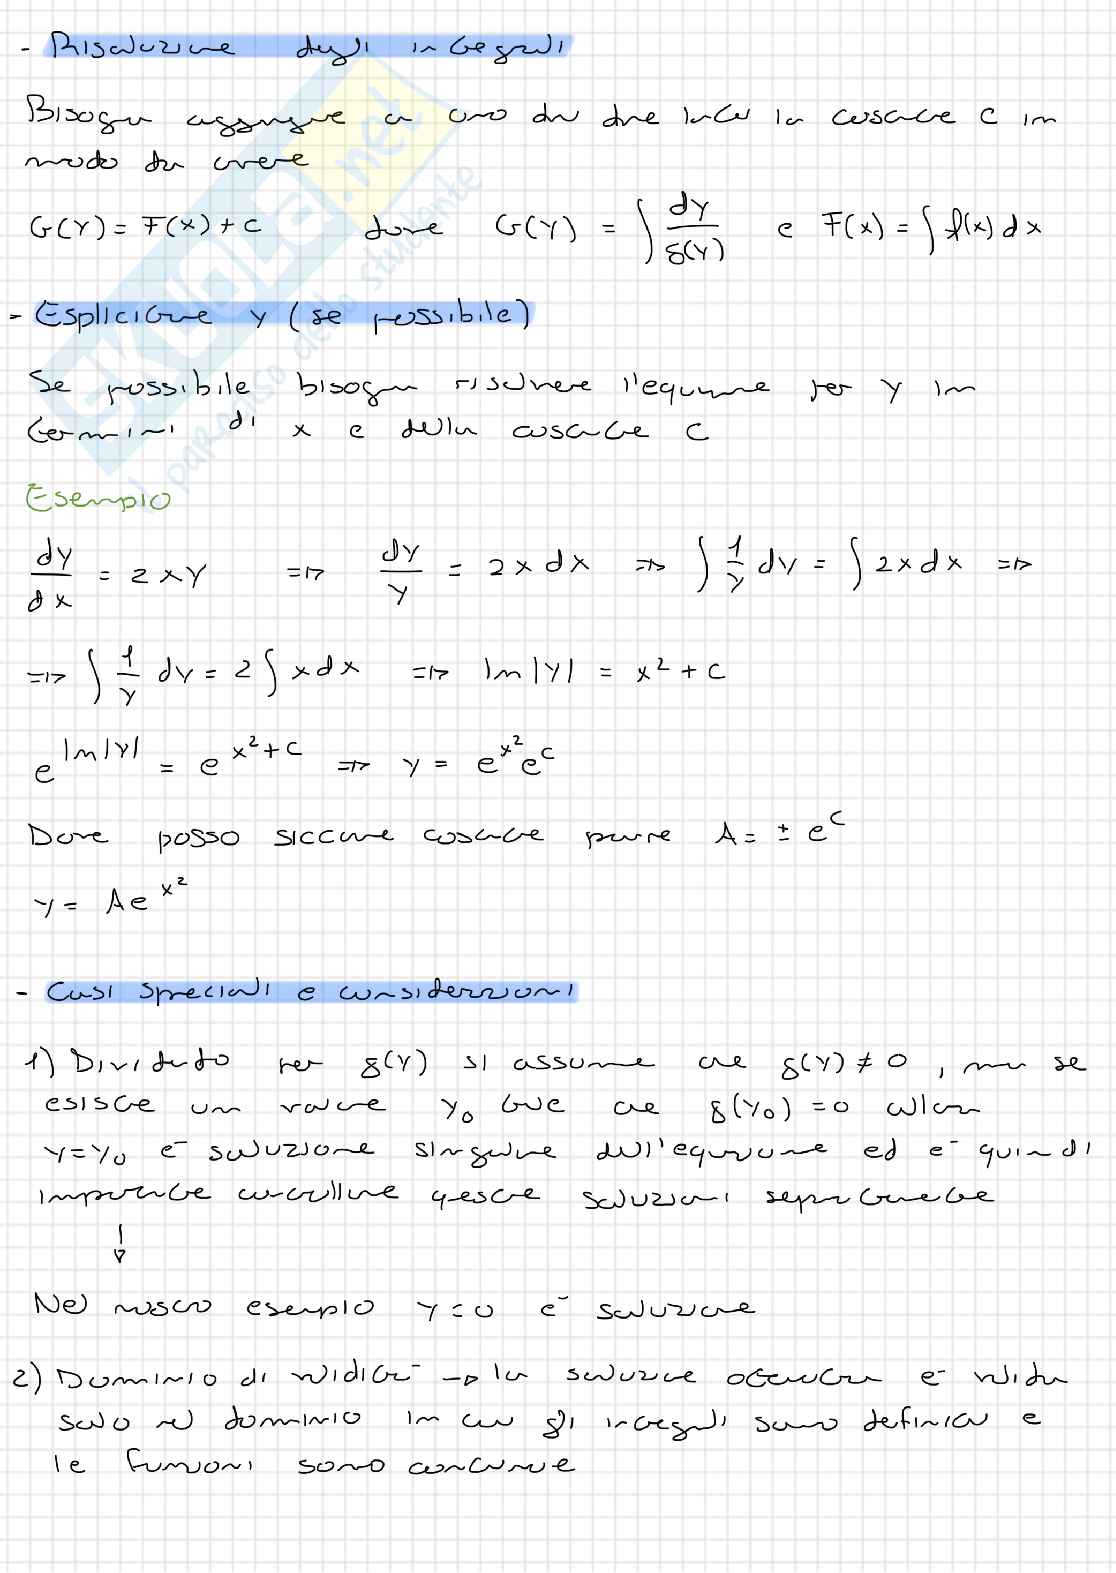 - Risoluzione degli integrali
Bisogna aggiungere a uno dei due lati la costante c in
modo da avere
G(y) = F(x) + c dove G(y) = ∫ dy/g(y) e F(x) = ∫ f(x) dx
- Esplicitare y (se possibile)
Se possibile bisogna risolvere l'equazione per y in
termini di x e della costante c
Esempio
dy/dx = 2xy => dy/y = 2x dx => ∫ 1/y dy = ∫ 2x dx =>
=> ∫ 1/y dy = 2 ∫ x dx => ln|y| = x² + c
e^(ln|y|) = e^(x²+c) => y = e^(x²) e^c
Dove posso siccome costante porre A = ± e^c
y = A e^(x²)
- Casi speciali e considerazioni
1) Dividendo per g(y) si assume che g(y) ≠ 0, ma se
esiste un valore y₀ tale che g(y₀) = 0 allora
y = y₀ è soluzione singolare dell'equazione ed è quindi
importante controllare queste soluzioni separatamente
↓
Nel nostro esempio y = 0 è soluzione
2) Dominio di validità -> la soluzione ottenuta è valida
solo nel dominio in cui gli integrali sono definiti e
le funzioni sono continue
SKUOLA.net
il paradiso dello studente